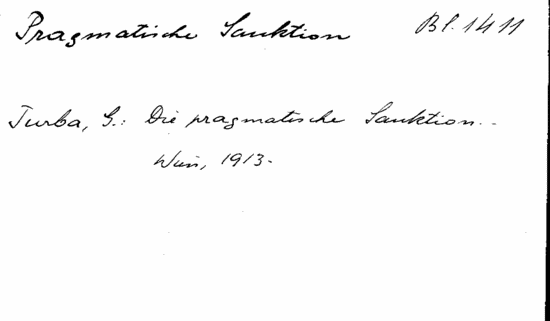 Pragmatische Sanktion Bl. 1411
Turba, G.: Die pragmatische Sanktion..
Wien, 1913.